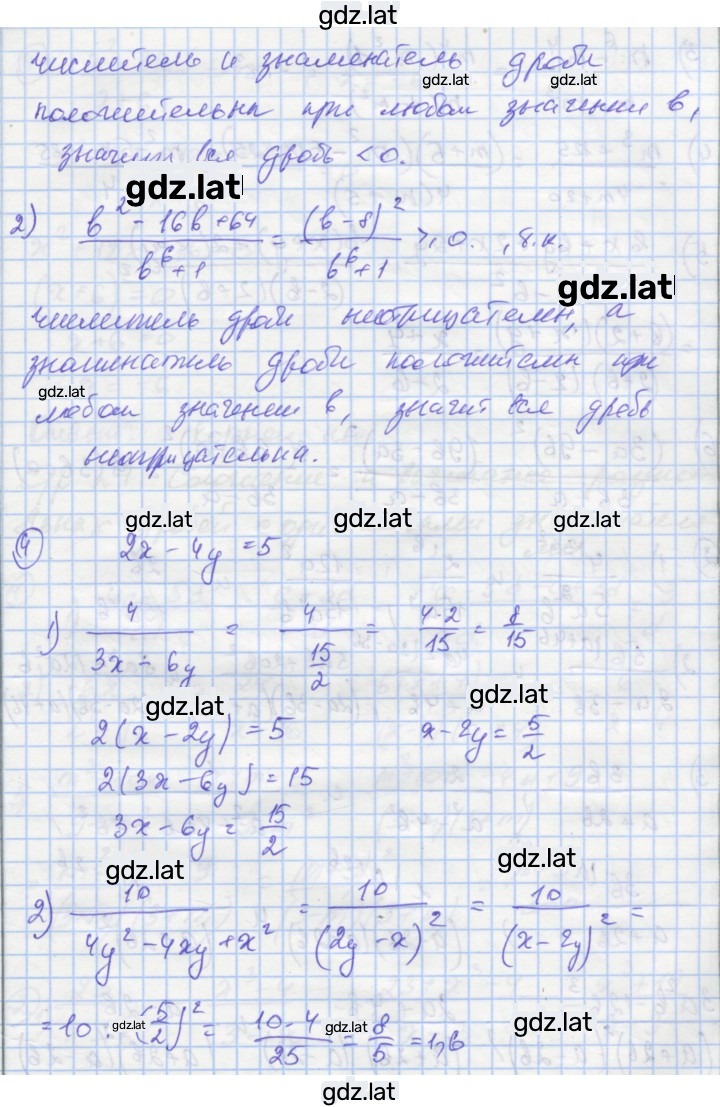 gdz.lat
числитель и знаменатель дроби
gdz.lat gdz.lat
положительны при любом значении b,
значит вся дробь < 0.
gdz.lat
2) (b² - 16b + 64)/(b⁶ + 1) = (b - 8)²/(b⁶ + 1) ≥ 0. , т.к.
gdz.lat
числитель дроби неотрицателен, а
знаменатель дроби положителен при
gdz.lat
любом значении b, значит вся дробь
неотрицательна.
gdz.lat gdz.lat gdz.lat
④ 2x - 4y = 5
1) 4/(3x - 6y) = 4/(15/2) = (4·2)/15 = 8/15
gdz.lat gdz.lat
2(x - 2y) = 5 x - 2y = 5/2
2(3x - 6y) = 15
3x - 6y = 15/2
gdz.lat gdz.lat
2) 10/(4y² - 4xy + x²) = 10/(2y - x)² = 10/(x - 2y)² =
= 10 : (5/2)² = (10·4)/25 = 8/5 = 1,6
gdz.lat gdz.lat gdz.lat
gdz.lat